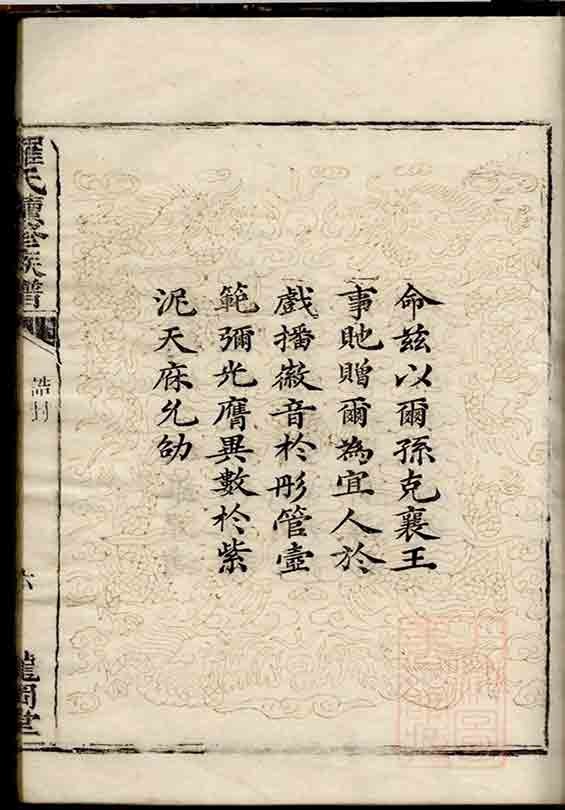 命茲以爾孫克襄王
事貤贈爾為宜人於
戲播徽音於彤管壼
範彌光膺異數於紫
泥天庥允劭
羅氏續修族譜
誥封
六